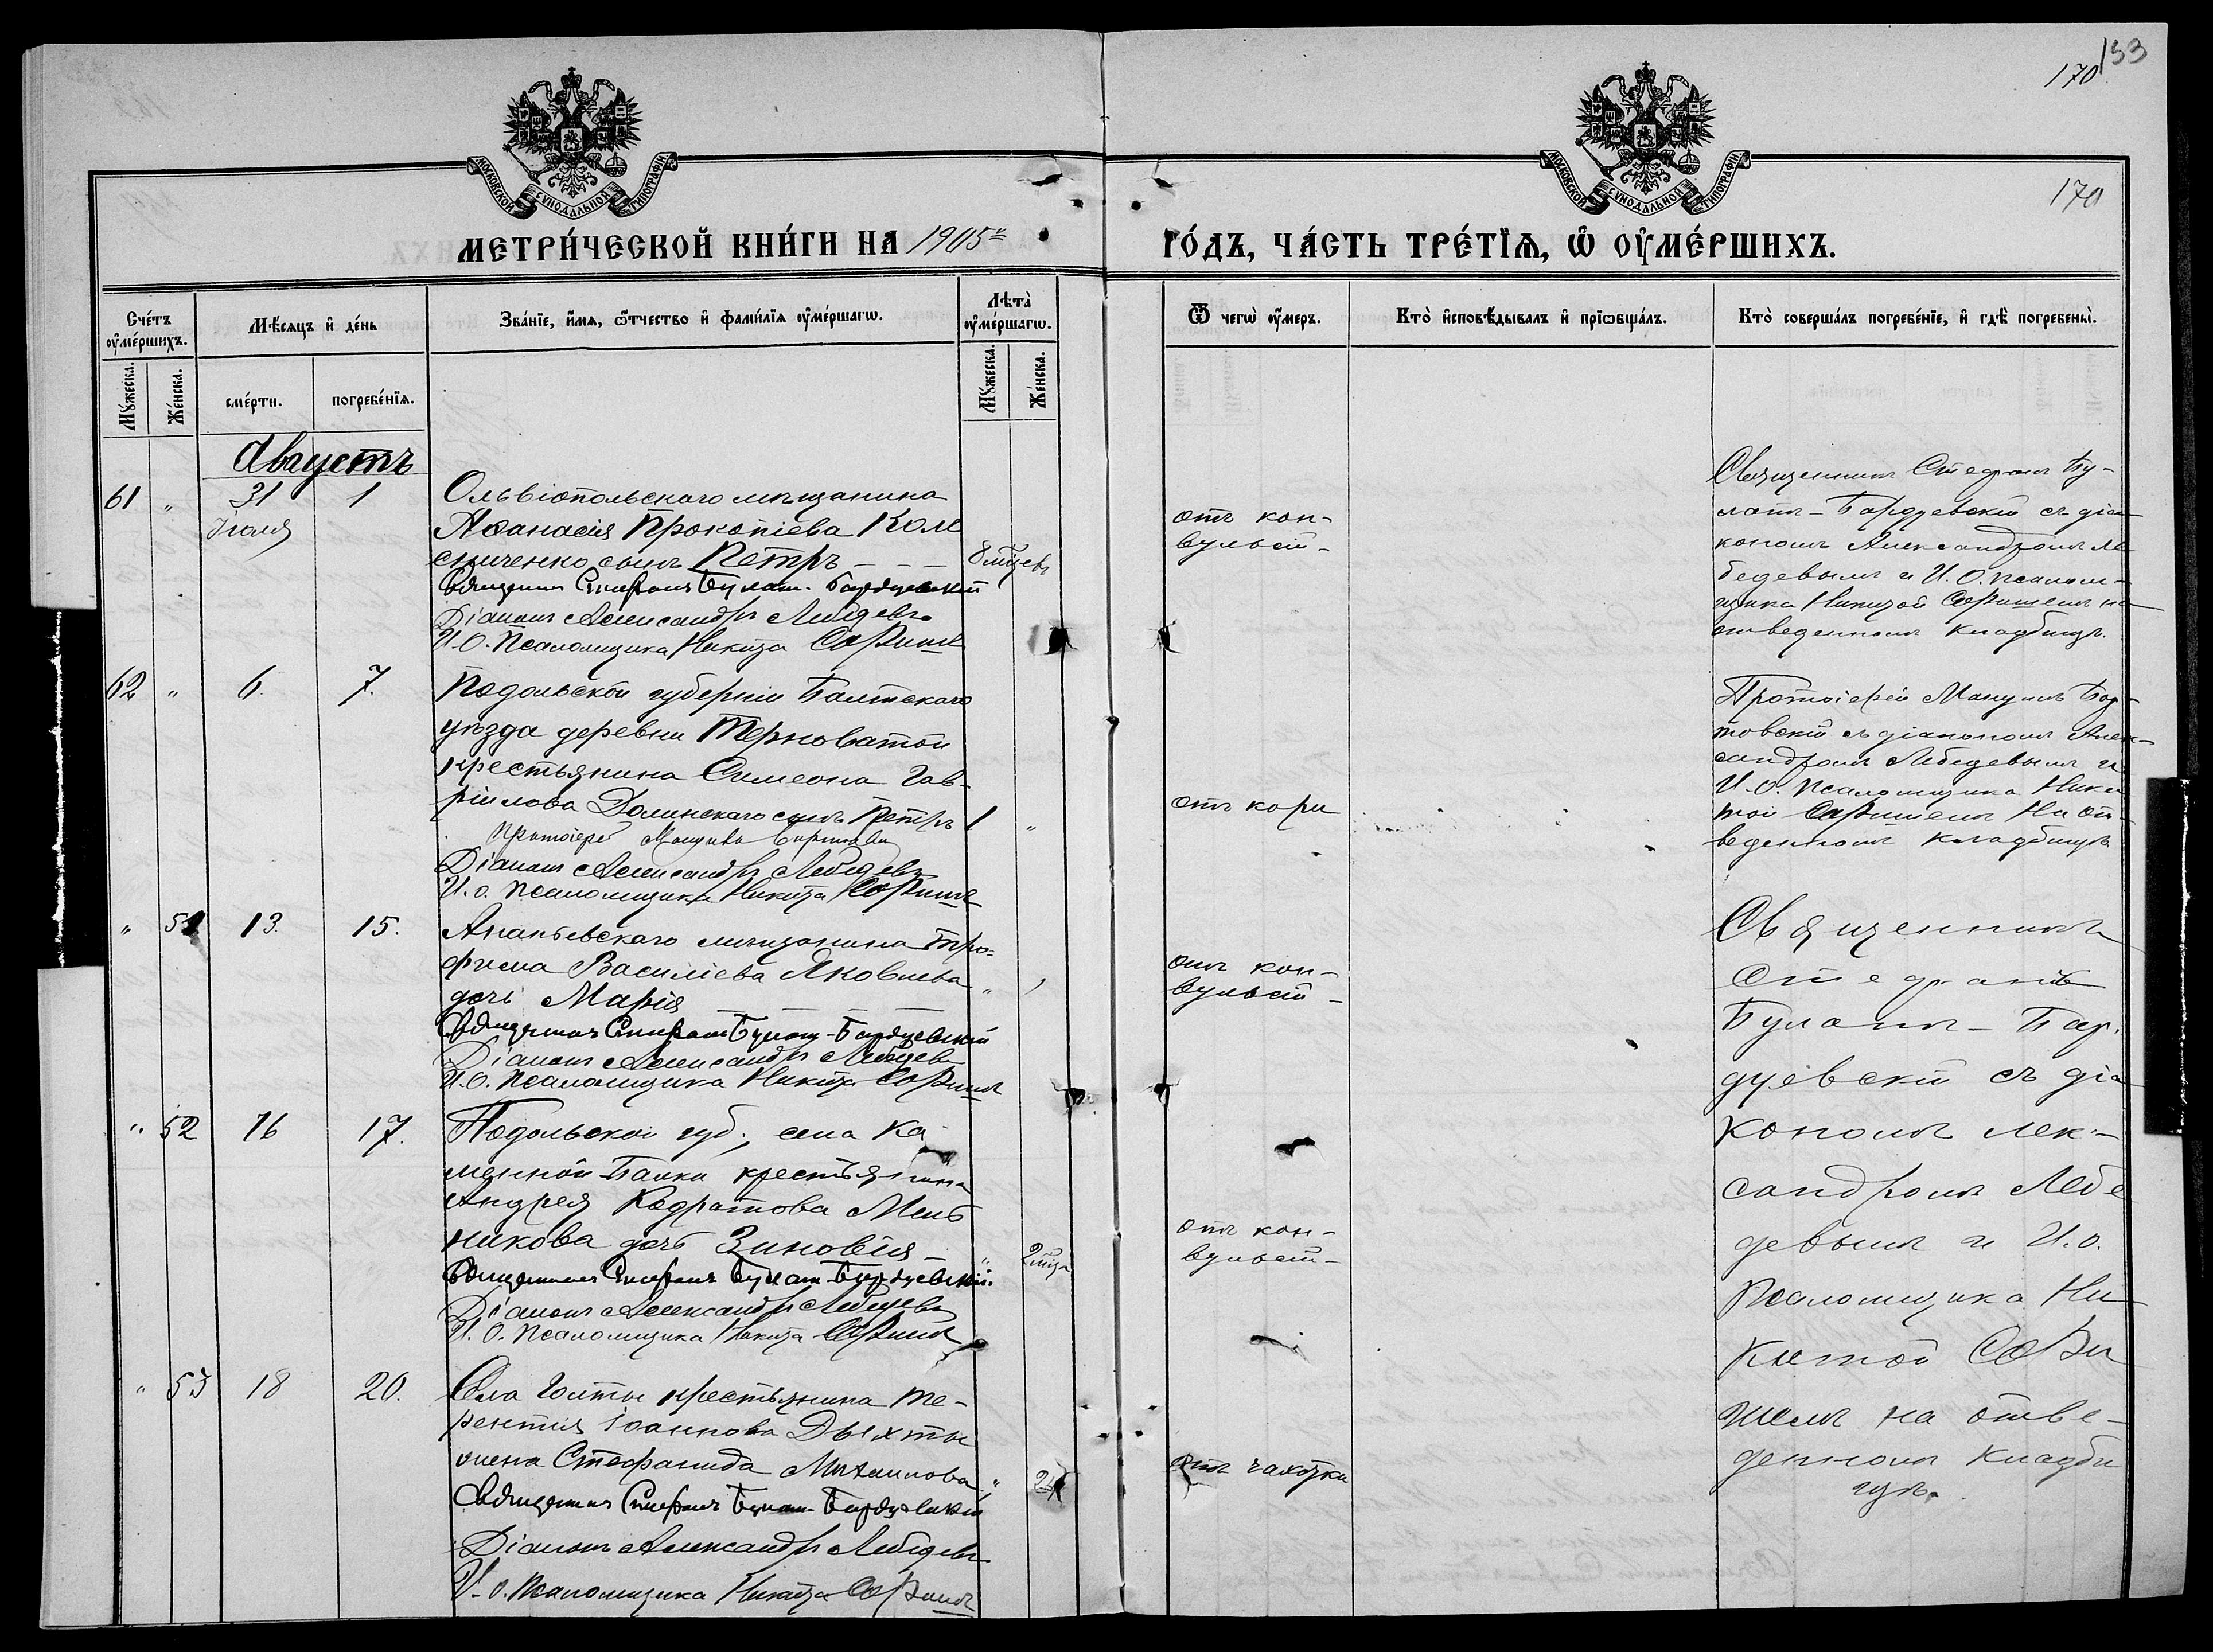 170
133
170
МОСКОВСКОЙ СУНОДАЛЬНОЙ ТИПОГРАФІИ
МОСКОВСКОЙ СУНОДАЛЬНОЙ ТИПОГРАФІИ
МЕТРИ́ЧЕСКОЙ КНИ́ГИ НА 1905 ГО́ДЪ, ЧА́СТЬ ТРЕ́ТЇѦ, Ѡ҆ ОУ҆МЕ́РШИХЪ.
Сче́тъ оу҆ме́ршихъ.
Мѣ́сяцъ и҆ де́нь
Зва́нїе, и҆́мѧ, ѻ҆́тчество и҆ фами́лїѧ оу҆ме́ршагѡ.
Лѣта̀ оу҆ме́ршагѡ.
Ѿ чегѡ̀ оу҆́меръ.
Кто̀ и҆сповѣ́дывалъ и҆ прїѡбща́лъ.
Кто̀ соверша́лъ погребе́нїе, и҆ гдѣ̀ погребены̀.
Мꙋ́жеска.
Же́нска.
сме́рти.
погребе́нїѧ.
Мꙋ́жеска.
Же́нска.
Августъ
61 " 31 Іюля 1
Ольвіопольскаго мѣщанина
Аѳанасія Прокопіева Коле
сниченко сынъ Петръ - - - 8 мѣцевъ
Священникъ Стефанъ Булат-Бардуевскій
Діаконъ Александръ Лебедевъ
И.О. Псаломщика Никита
отъ кон-
вульсій-
Священникъ Стефанъ Бу-
латъ-Бардуевскій съ діа-
кономъ Александромъ Ле
бедевымъ и И.О. псалом-
щика Никитой на
отведенномъ кладбищѣ.
62 " 6. 7.
Подольской губерніи Балтскаго
уѣзда деревни Терноватой
крестьянина Симеона Гав-
ріилова Долинскаго сынъ Петръ 1 "
Протоіерей
Діаконъ Александръ Лебедевъ
И.о. псаломщика Никита
отъ кори
Протоіерей
съ діакономъ Алек-
сандромъ Лебедевымъ и
И.О. Псаломщика Ники
той На от
веденномъ кладбищѣ
" 51 13. 15.
Ананьевскаго мѣщанина Тро-
фима Василіева Яковлева
дочь Марія " 1
Священникъ Стефанъ Булат-Бардуевскій
Діаконъ Александръ Лебедевъ
И.О. Псаломщика Никита
отъ кон-
вульсій-
Священникъ
Стефанъ
Булатъ-Бар-
дуевскій съ діа
кономъ лек-
сандромъ Лебе
девымъ и И.о.
Псаломщика Ни
китой
на отве-
денномъ кладби
щѣ.
" 52 16 17.
Подольской губ., села Ка-
менной-Балки крестьянина
Андрея Кодратова Мель
никова дочь Зиновія - " 2 мѣца
Священникъ Стефанъ Булат-Бардуевскій.
Діаконъ Александръ Лебедевъ
И.О. Псаломщика Никита
отъ кон-
вульсій-
" 53 18 20.
Села Голты крестьянина Те-
рентія Іоаннова Дыхты
жена Стефанида Михаилова "
Священникъ Стефанъ Булат-Бардуевскій
Діаконъ Александръ Лебедевъ
И.о. Псаломщика Никита
отъ чахотки